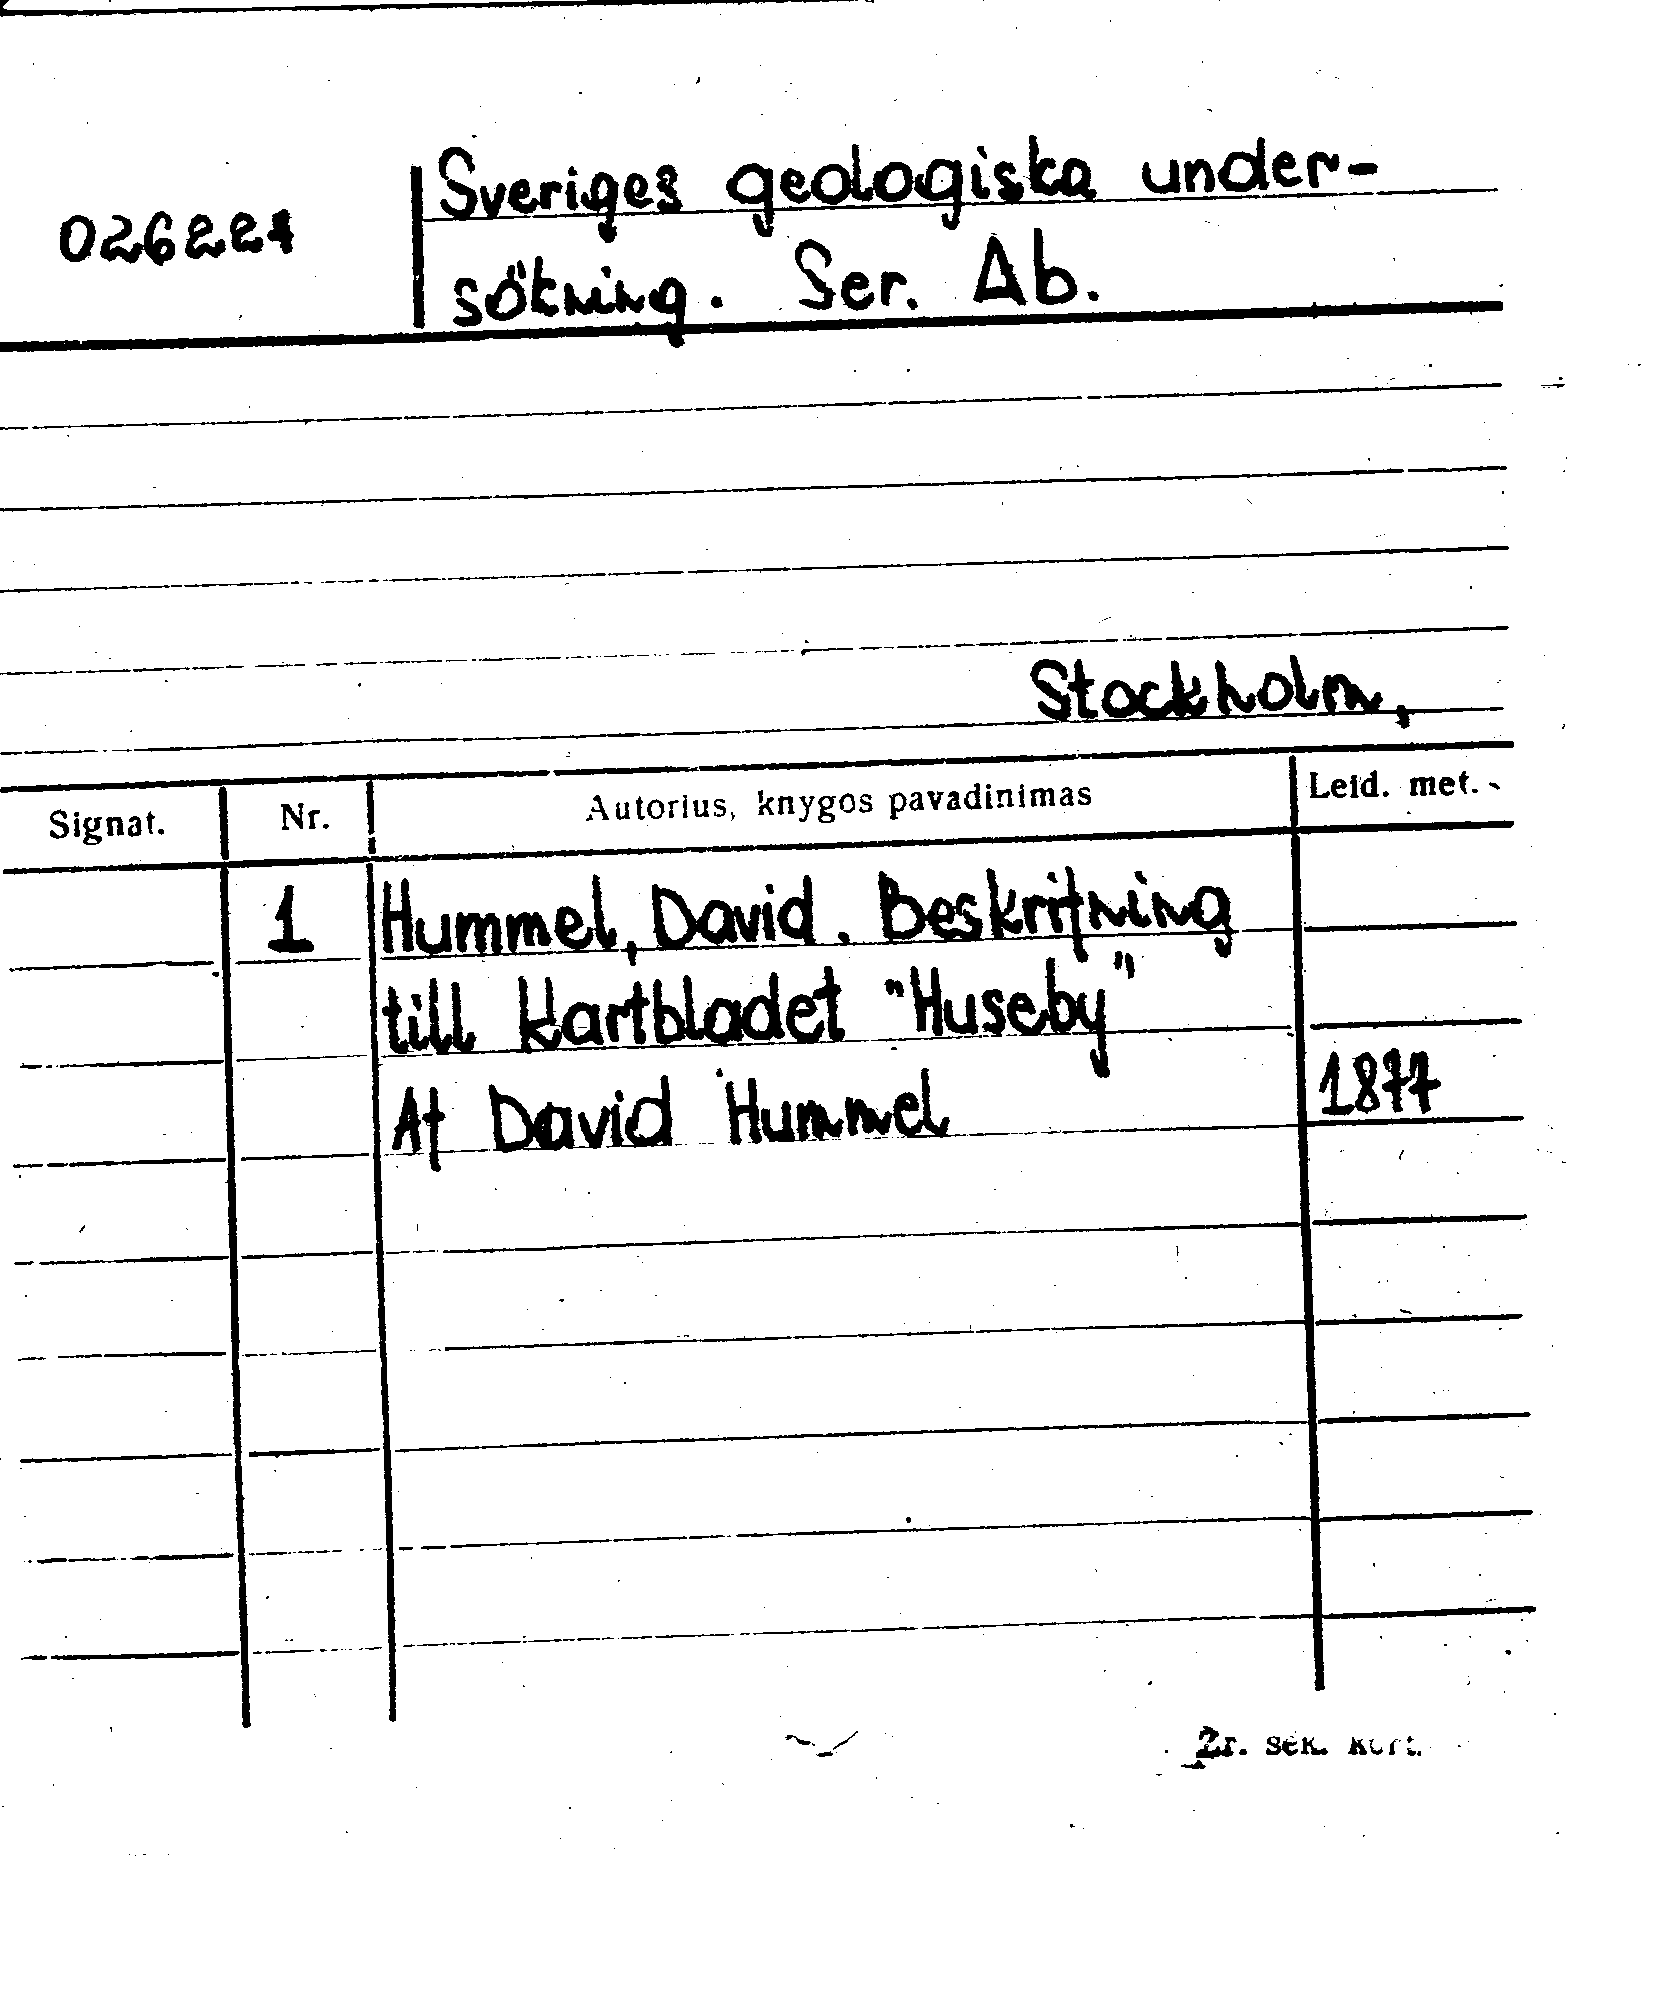 026221
Sveriges geologiska under-
sökning. Ser. Ab.
Stockholm,
Signat. Nr. Autorius, knygos pavadinimas Leid. met.
1 Hummel, David. Beskrifning
till Kartbladet "Huseby"
Af David Hummel 1877
Žr. sek. kort.